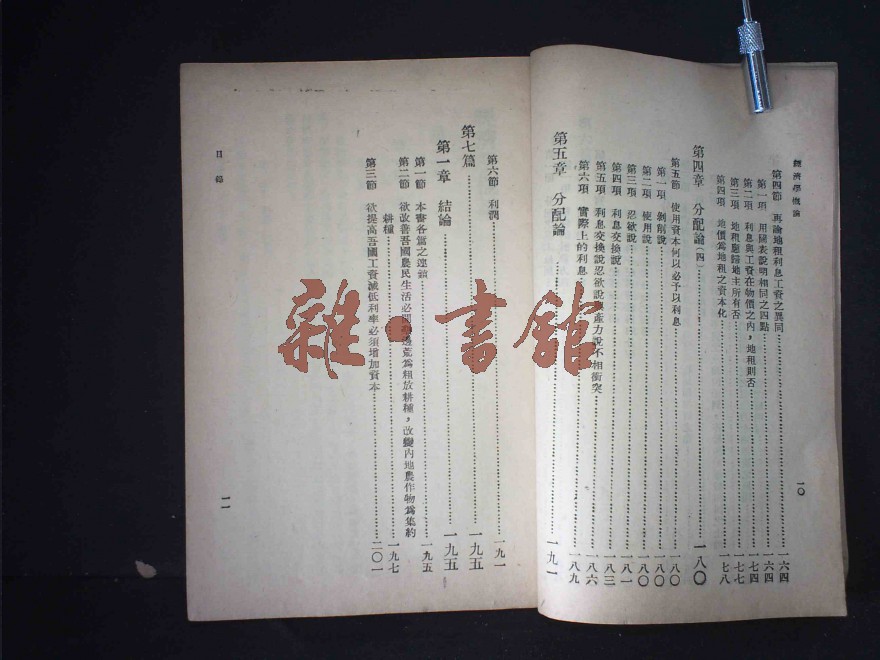 經濟學概論
第四節 再論地租利息工資之異同 一六四
第一項 用圖表說明相同之四點 一六四
第二項 利息與工資在物價之內，地租則否 一七四
第三項 地租應歸地主所有否 一七七
第四項 地價為地租之資本化 一七八
第四章 分配論(四) 一八〇
第五節 使用資本何以必予以利息 一八〇
第一項 剝削說 一八〇
第二項 使用說 一八〇
第三項 忍欲說 一八一
第四項 利息交換說 一八三
第五項 利息交換說忍欲說 產力說不相衝突 一八六
第六項 實際上的利息 一八九
第五章 分配論 一九一
一〇
第六節 利潤 一九一
第七篇 一九五
第一章 結論 一九五
第一節 本書各篇之連鎖 一九五
第二節 欲改善吾國農民生活必 邊荒為粗放耕種，改變內地農作物為集約
耕種 一九七
第三節 欲提高吾國工資減低利率必須增加資本 二〇一
目錄
一一
雜·書館